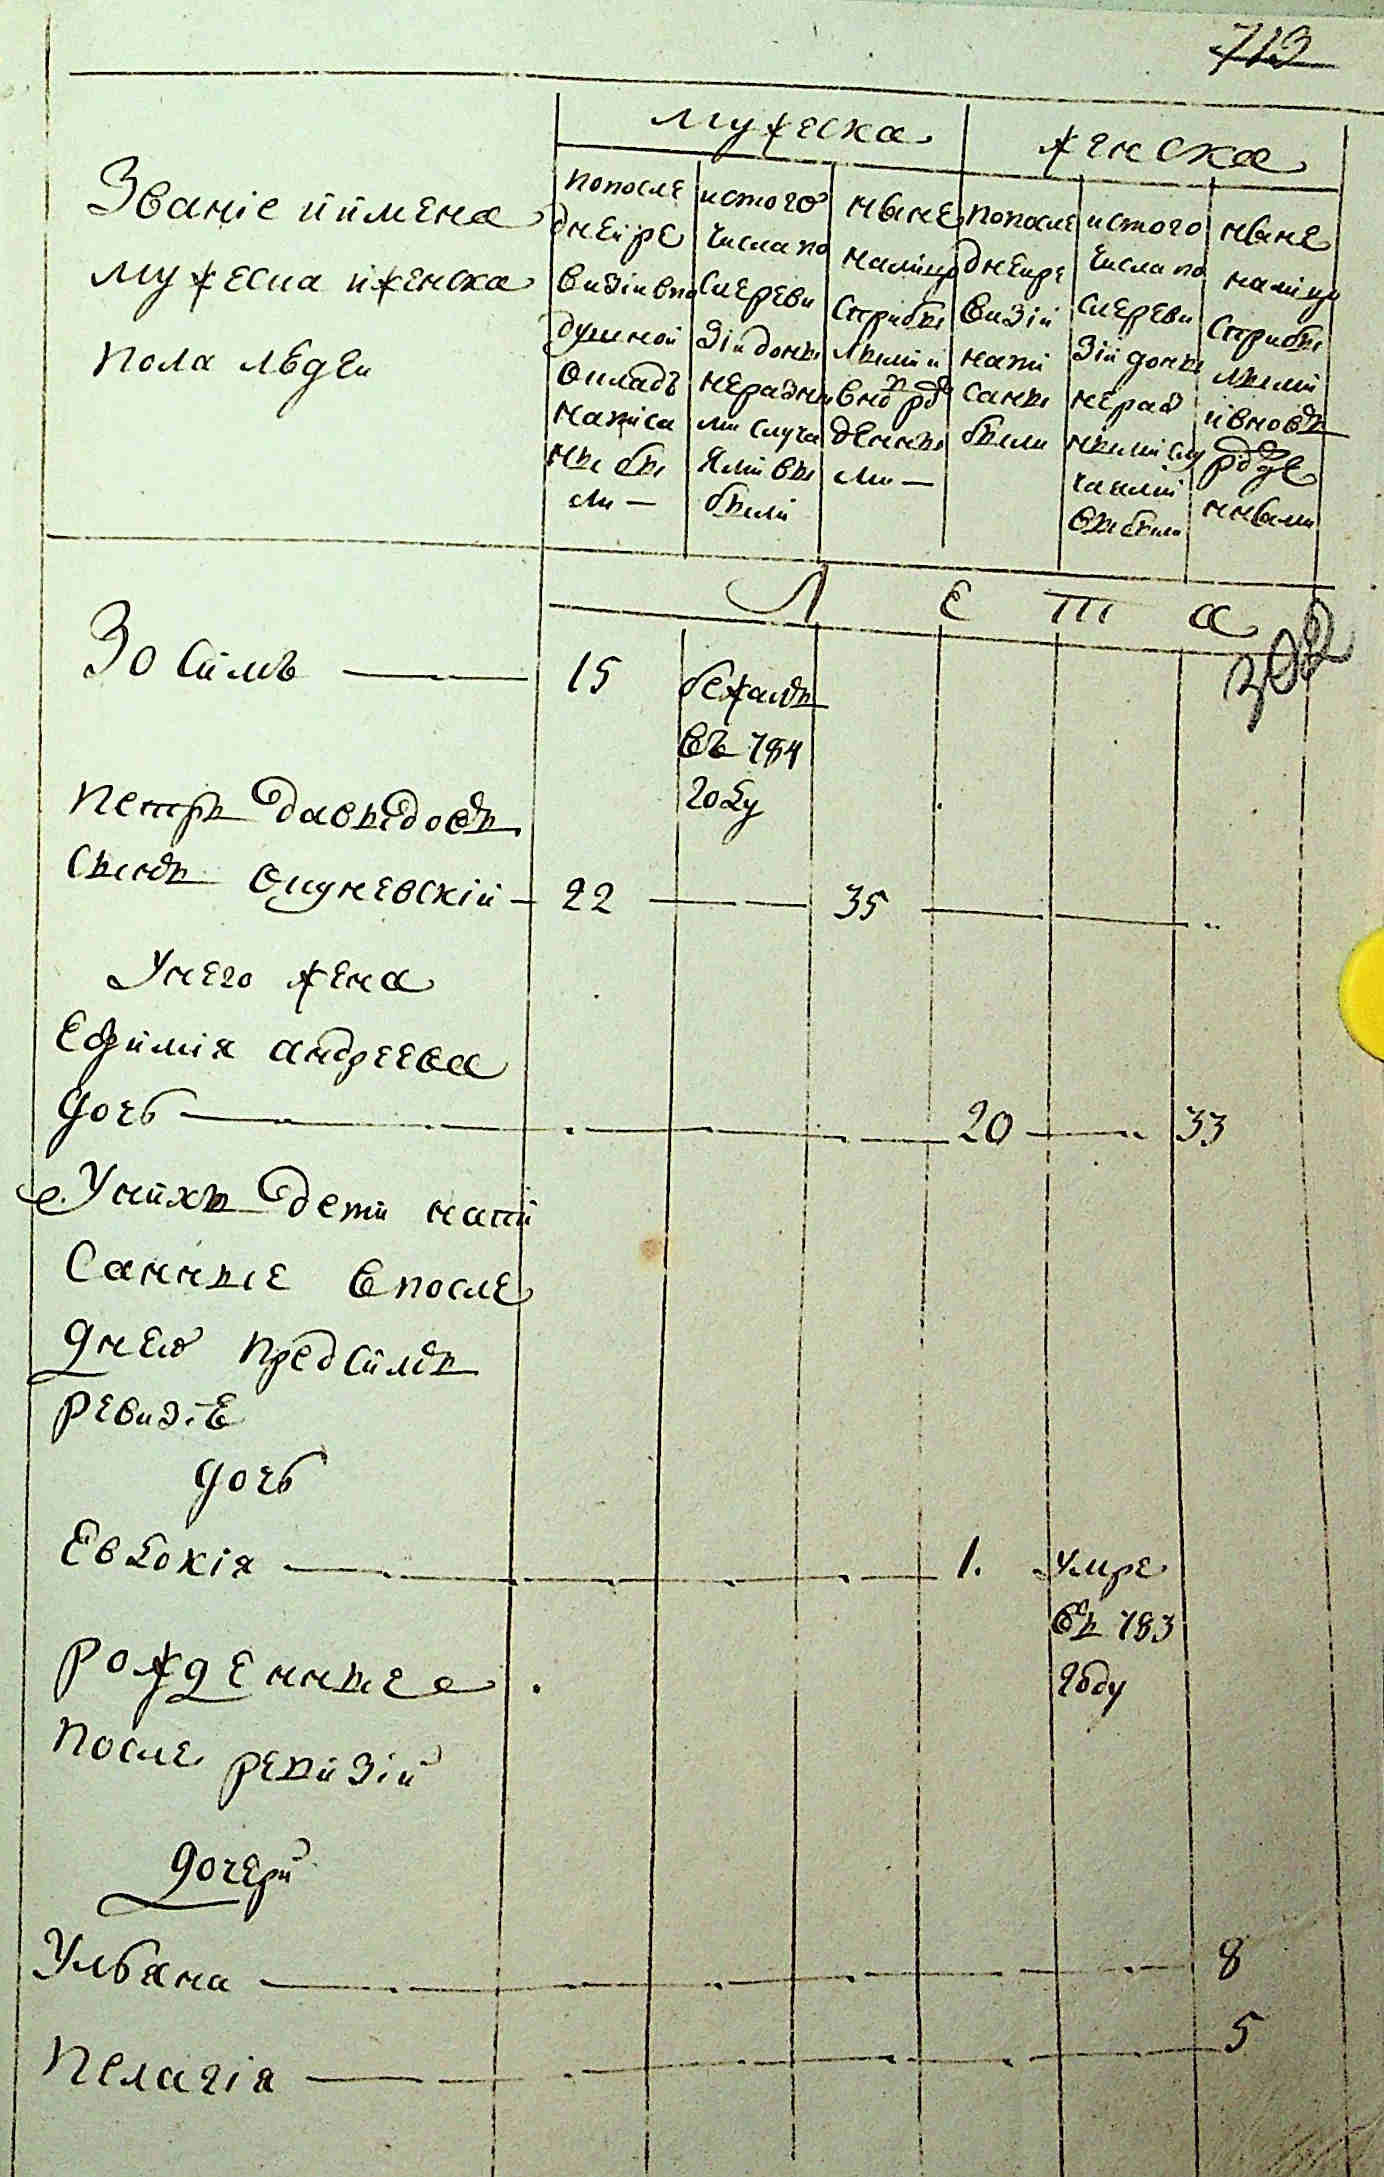 713
Мужеска
женска
Званіе и имена
мужеска и женска
пола людеи
попосле
днеи ре
визіи впо
душной
окладъ
написа
ны бы
ли —
ис того
числа по
сле реви
зіи донн
нѣ разны
ми случа
ями вы
были
ныне
на лицо
с прибы
лыми и
вновь рож
денны
ми —
попосле
днеи ре
визіи
напи
саны
были
ис того
числа по
сле реви
зіи донн
нѣ раз
ными слу
чаями
выбыли
ныне
на лицо
с прибы
лыми
и вновь
рожде
нными
Л Е Т А
302
Зосимъ — 15 бежалъ
въ 784
году
Петръ Давыдовъ
сынъ Окуневскій — 22 — 35
У него жена
Ефимія Андреева
дочь — 20 — 33
У нихъ дети напи
санные в после
днею предъ симъ
ревизіе
дочь
Евдокія — 1. умре
въ 783
году
рожденные
после ревизіи
дочери
Ульяна — 8
Пелагія — 5